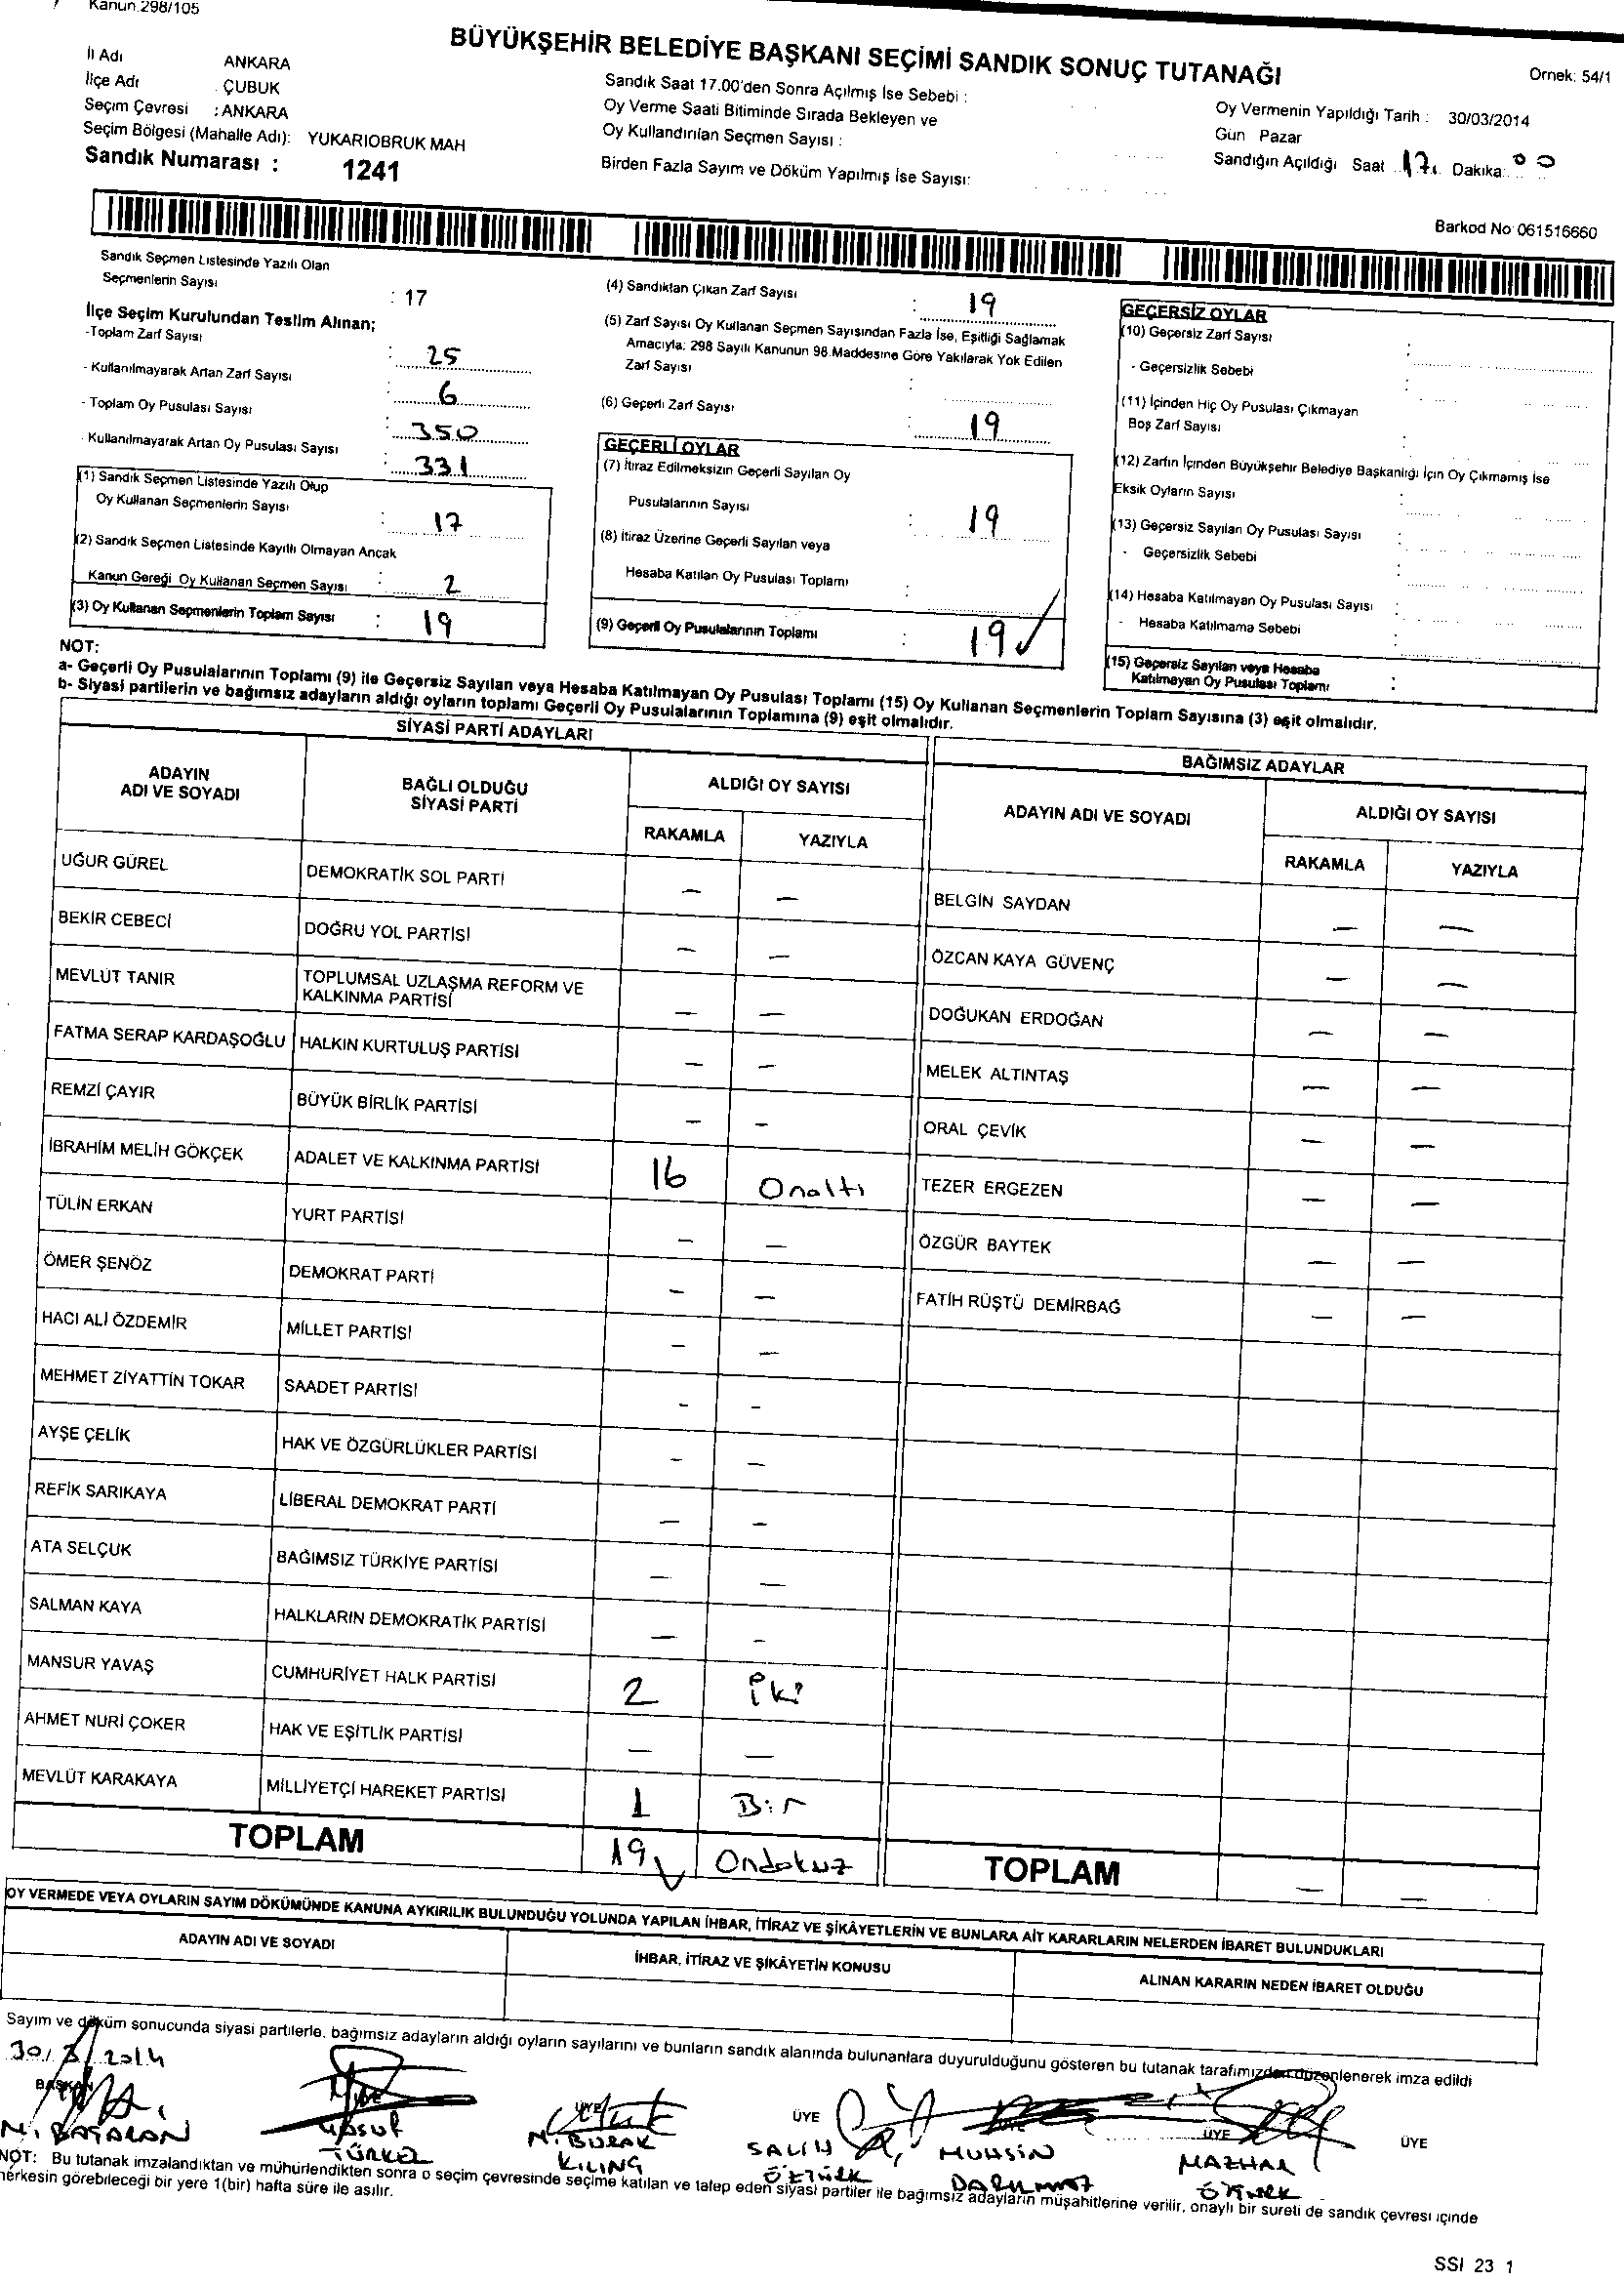 Kanun.298/105
BÜYÜKŞEHİR BELEDİYE BAŞKANI SEÇİMİ SANDIK SONUÇ TUTANAĞI
Ornek: 54/1
İl Adı ANKARA
İlçe Adı : ÇUBUK
Seçim Çevresi : ANKARA
Seçim Bölgesi (Mahalle Adı): YUKARIOBRUK MAH
Sandık Numarası : 1241
Sandık Saat 17.00'den Sonra Açılmış İse Sebebi :
Oy Verme Saati Bitiminde Sırada Bekleyen ve
Oy Kullandırılan Seçmen Sayısı :
Birden Fazla Sayım ve Döküm Yapılmış İse Sayısı:
Oy Vermenin Yapıldığı Tarih : 30/03/2014
Gün Pazar
Sandığın Açıldığı Saat 17. Dakika: 00
Barkod No 061516660
Sandık Seçmen Listesinde Yazılı Olan
Seçmenlerin Sayısı : 17
İlçe Seçim Kurulundan Teslim Alınan;
-Toplam Zarf Sayısı : 25
- Kullanılmayarak Artan Zarf Sayısı : 6
- Toplam Oy Pusulası Sayısı : 350
- Kullanılmayarak Artan Oy Pusulası Sayısı : 331
(1) Sandık Seçmen Listesinde Yazılı Olup
Oy Kullanan Seçmenlerin Sayısı : 17
(2) Sandık Seçmen Listesinde Kayıtlı Olmayan Ancak
Kanun Gereği Oy Kullanan Seçmen Sayısı : 2
(3) Oy Kullanan Seçmenlerin Toplam Sayısı : 19
(4) Sandıktan Çıkan Zarf Sayısı : 19
(5) Zarf Sayısı Oy Kullanan Seçmen Sayısından Fazla İse, Eşitliği Sağlamak
Amacıyla; 298 Sayılı Kanunun 98.Maddesine Göre Yakılarak Yok Edilen
Zarf Sayısı :
(6) Geçerli Zarf Sayısı : 19
GEÇERLİ OYLAR
(7) İtiraz Edilmeksizin Geçerli Sayılan Oy
Pusulalarının Sayısı : 19
(8) İtiraz Üzerine Geçerli Sayılan veya
Hesaba Katılan Oy Pusulası Toplamı :
(9) Geçerli Oy Pusulalarının Toplamı : 19 ✓
GEÇERSİZ OYLAR
(10) Geçersiz Zarf Sayısı :
- Geçersizlik Sebebi :
(11) İçinden Hiç Oy Pusulası Çıkmayan
Boş Zarf Sayısı :
(12) Zarfın İçinden Büyükşehir Belediye Başkanlığı İçin Oy Çıkmamış İse
Eksik Oyların Sayısı :
(13) Geçersiz Sayılan Oy Pusulası Sayısı :
- Geçersizlik Sebebi :
(14) Hesaba Katılmayan Oy Pusulası Sayısı :
- Hesaba Katılmama Sebebi :
(15) Geçersiz Sayılan veya Hesaba
Katılmayan Oy Pusulası Toplamı :
NOT:
a- Geçerli Oy Pusulalarının Toplamı (9) ile Geçersiz Sayılan veya Hesaba Katılmayan Oy Pusulası Toplamı (15) Oy Kullanan Seçmenlerin Toplam Sayısına (3) eşit olmalıdır.
b- Siyasi partilerin ve bağımsız adayların aldığı oyların toplamı Geçerli Oy Pusulalarının Toplamına (9) eşit olmalıdır.
SİYASİ PARTİ ADAYLARI
ADAYIN ADI VE SOYADI BAĞLI OLDUĞU SİYASİ PARTİ ALDIĞI OY SAYISI
RAKAMLA YAZIYLA
UĞUR GÜREL DEMOKRATİK SOL PARTİ – –
BEKİR CEBECİ DOĞRU YOL PARTİSİ – –
MEVLÜT TANIR TOPLUMSAL UZLAŞMA REFORM VE KALKINMA PARTİSİ – –
FATMA SERAP KARDAŞOĞLU HALKIN KURTULUŞ PARTİSİ – –
REMZİ ÇAYIR BÜYÜK BİRLİK PARTİSİ – –
İBRAHİM MELİH GÖKÇEK ADALET VE KALKINMA PARTİSİ 16 Onaltı
TÜLİN ERKAN YURT PARTİSİ – –
ÖMER ŞENÖZ DEMOKRAT PARTİ – –
HACI ALİ ÖZDEMİR MİLLET PARTİSİ – –
MEHMET ZİYATTİN TOKAR SAADET PARTİSİ – –
AYŞE ÇELİK HAK VE ÖZGÜRLÜKLER PARTİSİ – –
REFİK SARIKAYA LİBERAL DEMOKRAT PARTİ – –
ATA SELÇUK BAĞIMSIZ TÜRKİYE PARTİSİ – –
SALMAN KAYA HALKLARIN DEMOKRATİK PARTİSİ – –
MANSUR YAVAŞ CUMHURİYET HALK PARTİSİ 2 İki
AHMET NURİ ÇOKER HAK VE EŞİTLİK PARTİSİ – –
MEVLÜT KARAKAYA MİLLİYETÇİ HAREKET PARTİSİ 1 Bir
TOPLAM 19 ✓ Ondokuz
BAĞIMSIZ ADAYLAR
ADAYIN ADI VE SOYADI ALDIĞI OY SAYISI
RAKAMLA YAZIYLA
BELGİN SAYDAN – –
ÖZCAN KAYA GÜVENÇ – –
DOĞUKAN ERDOĞAN – –
MELEK ALTINTAŞ – –
ORAL ÇEVİK – –
TEZER ERGEZEN – –
ÖZGÜR BAYTEK – –
FATİH RÜŞTÜ DEMİRBAĞ – –
TOPLAM – –
OY VERMEDE VEYA OYLARIN SAYIM DÖKÜMÜNDE KANUNA AYKIRILIK BULUNDUĞU YOLUNDA YAPILAN İHBAR, İTİRAZ VE ŞİKÂYETLERİN VE BUNLARA AİT KARARLARIN NELERDEN İBARET BULUNDUKLARI
ADAYIN ADI VE SOYADI İHBAR, İTİRAZ VE ŞİKÂYETİN KONUSU ALINAN KARARIN NEDEN İBARET OLDUĞU
Sayım ve döküm sonucunda siyasi partilerle, bağımsız adayların aldığı oyların sayılarını ve bunların sandık alanında bulunanlara duyurulduğunu gösteren bu tutanak tarafımızdan düzenlenerek imza edildi
30/3/2014
BAŞKAN ÜYE ÜYE ÜYE ÜYE
N. BAŞARAN Yusuf TÜRKEL N. BURAK KILINÇ SALİH ÖZTÜRK MUHSİN MAZHAR
NOT: Bu tutanak imzalandıktan ve mühürlendikten sonra o seçim çevresinde seçime katılan ve talep eden siyasi partiler ile bağımsız adayların müşahitlerine verilir, onaylı bir sureti de sandık çevresi içinde
herkesin görebileceği bir yere 1(bir) hafta süre ile asılır.
SSI 23 1